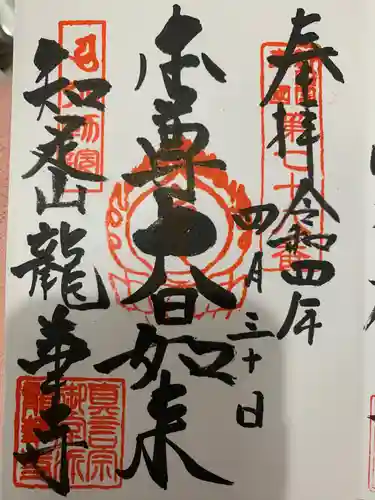 奉拝
令和四年
四月三十日
本尊大日如来
知足山龍華寺
真言宗
御室派
龍華寺